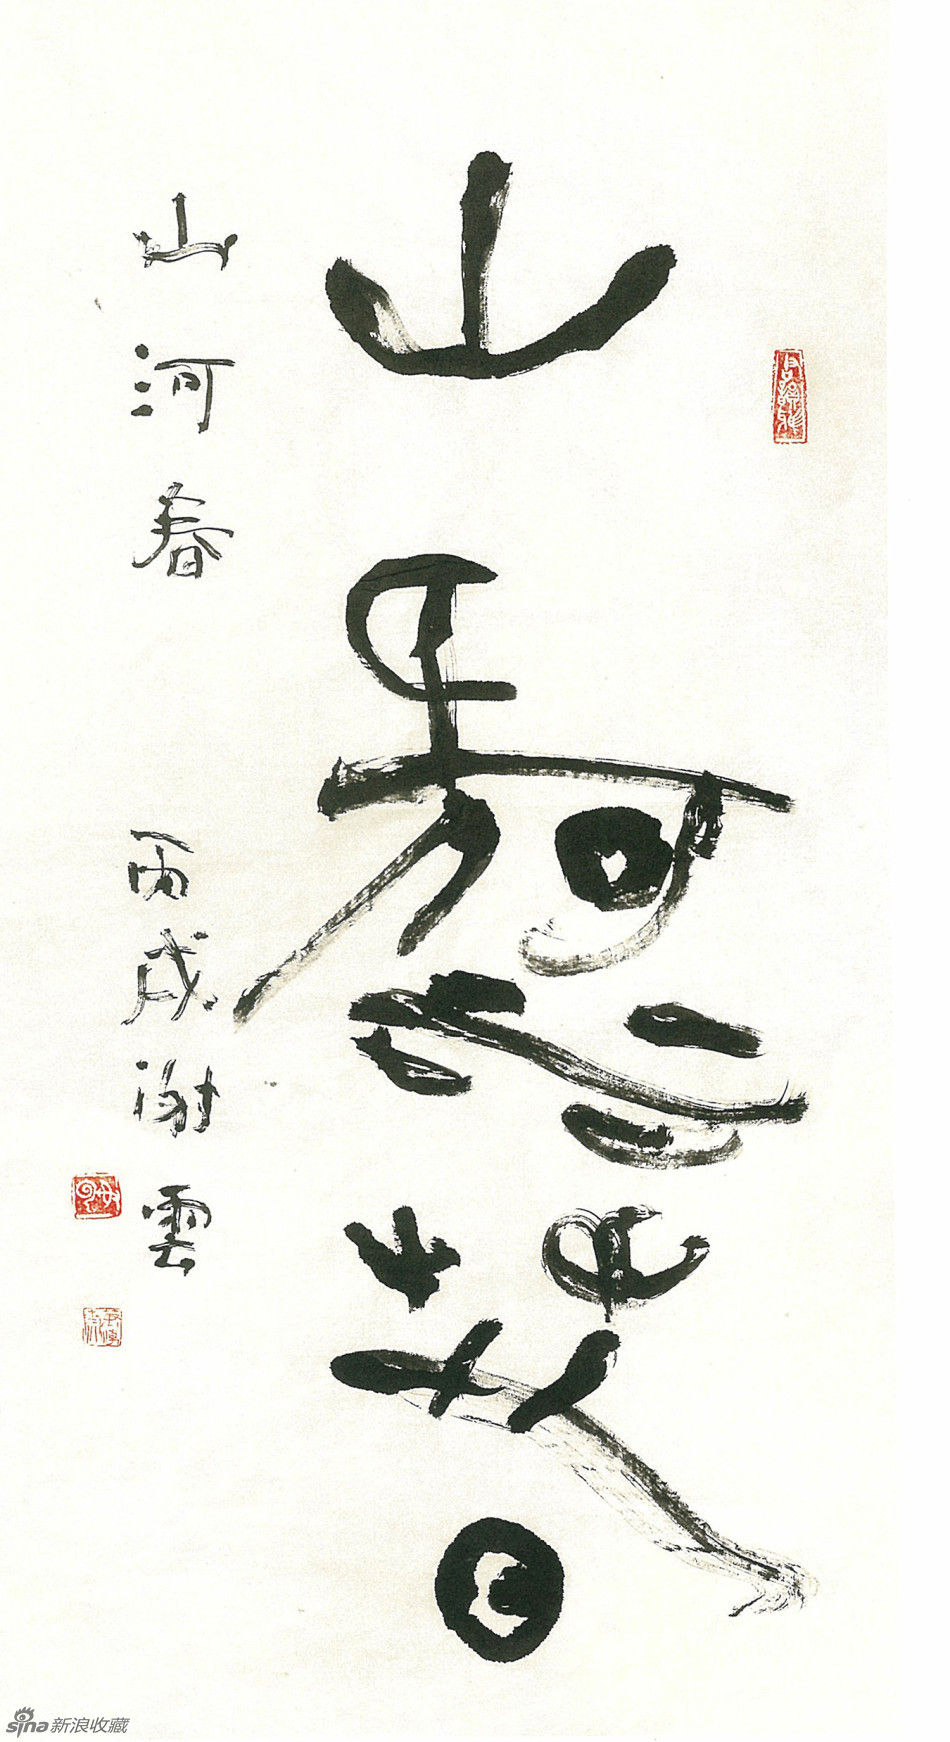 山河春
山河春
丙戌谢雲
sina新浪收藏